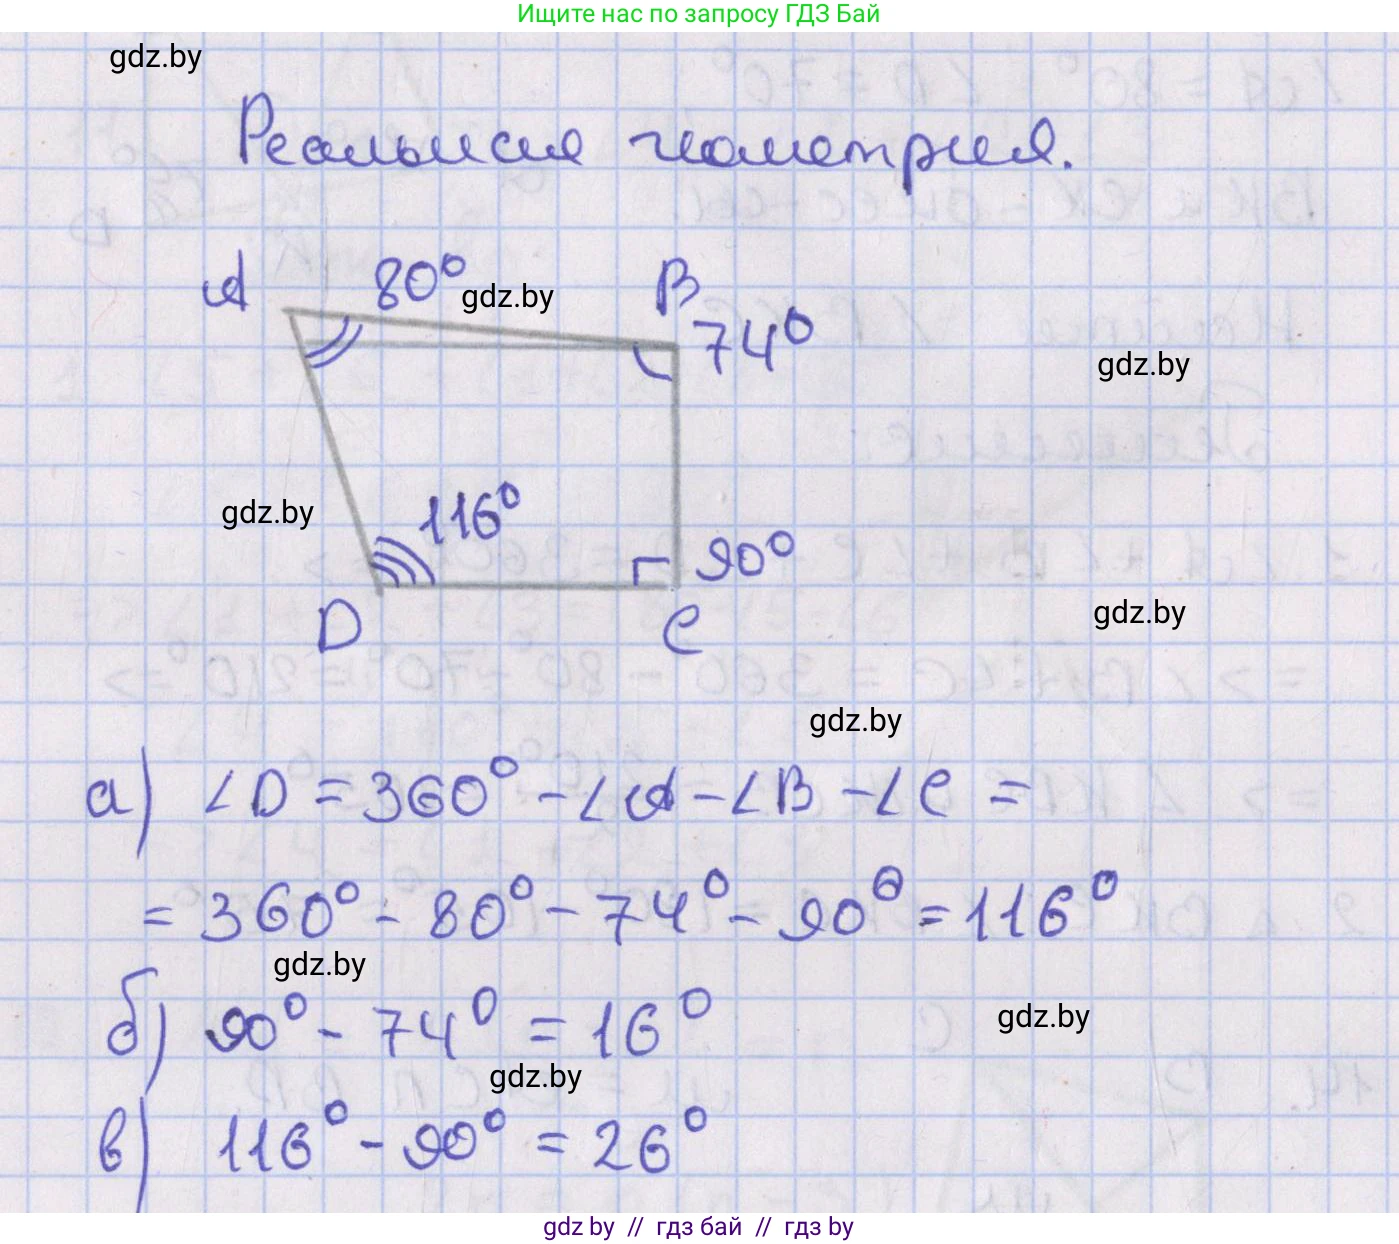 Ищите нас по запросу ГДЗ Бай
gdz.by
Реальная геометрия.
A 80° gdz.by B
74°
gdz.by
gdz.by 116°
90°
D C
gdz.by
gdz.by
а) ∠D = 360° - ∠A - ∠B - ∠C =
= 360° - 80° - 74° - 90° = 116°
gdz.by
б) 90° - 74° = 16°
gdz.by
gdz.by
в) 116° - 90° = 26°
gdz.by // гдз бай // гдз by